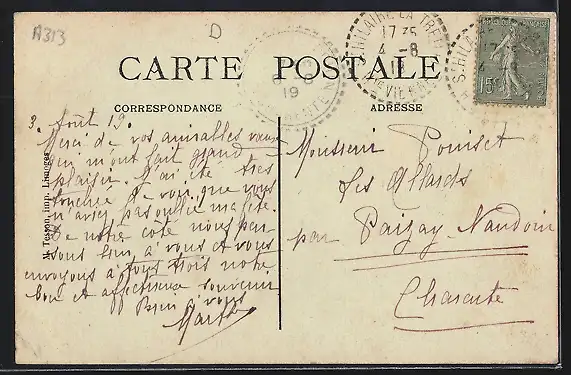 A313
D
CARTE POSTALE
CORRESPONDANCE
ADRESSE
St HILAIRE LA TREILLE
17 35
4 - 8
19
Hte VIENNE
19
15c
3. Août 19.
Merci de vos aimables vœux
qui m'ont fait grand
plaisir. J'ai été très
touchée de voir que vous
n'aviez pas oublié ma fête.
De notre côté nous pen-
sons bien à vous et vous
envoyons à tous trois notre
bon et affectueux souvenir
Bien à vous
Marthe
Monsieur Pouiset
Les Allards
par Paizay-Naudouin
Charente
M. Tesson, imp. Limoges